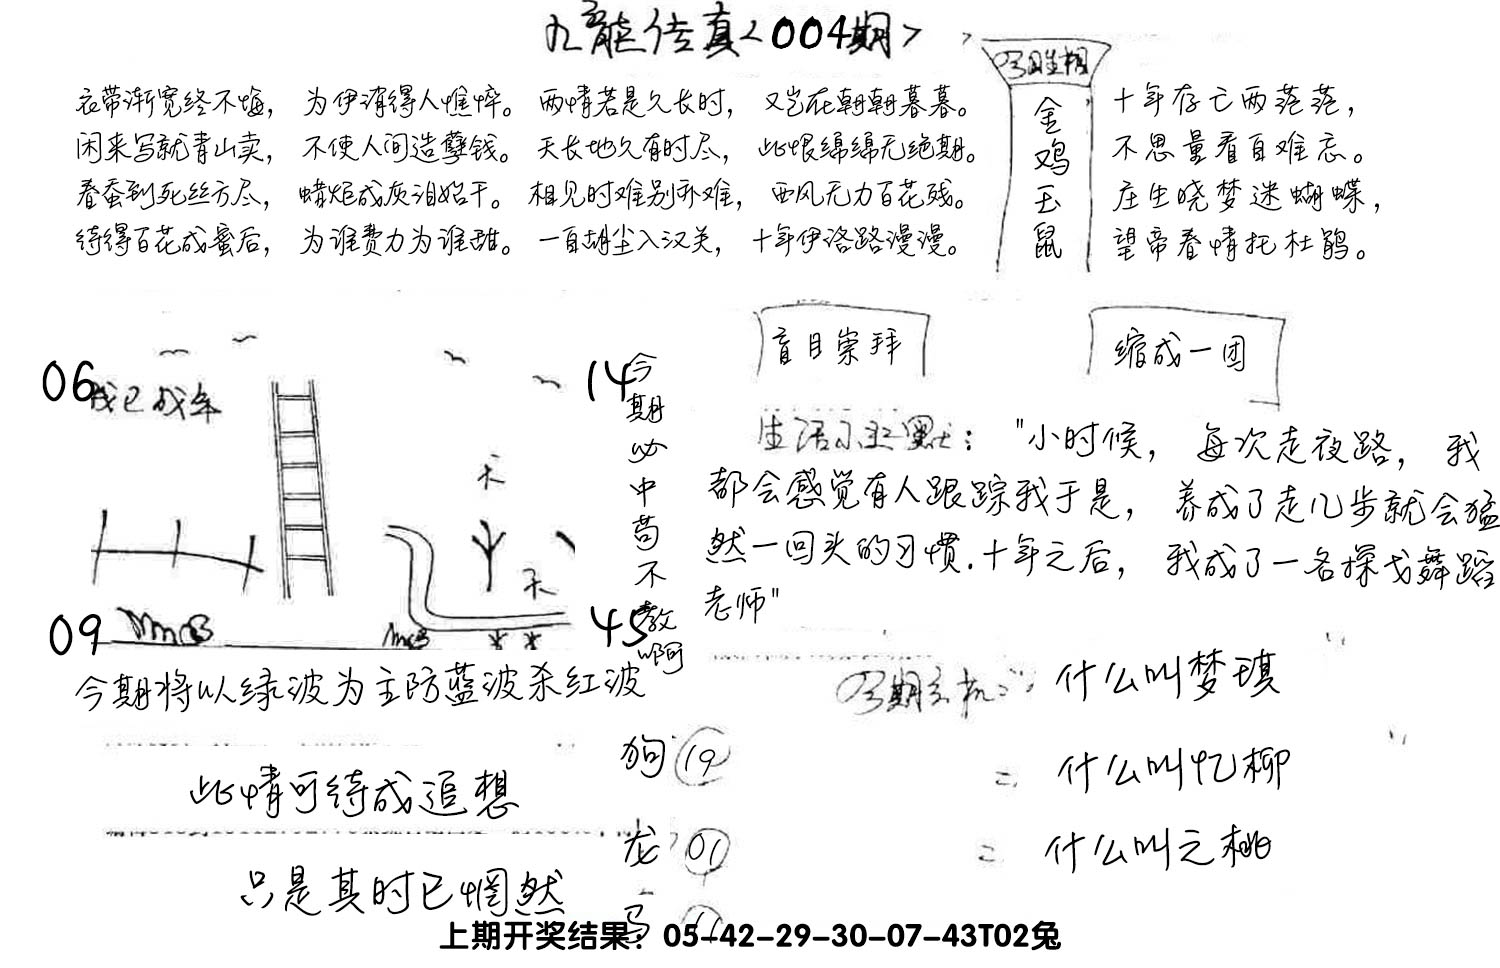 九龍传真<004期>
衣带渐宽终不悔，为伊消得人憔悴。两情若是久长时，又岂在朝朝暮暮。
闲来写就青山卖，不使人间造孽钱。天长地久有时尽，此恨绵绵无绝期。
春蚕到死丝方尽，蜡炬成灰泪始干。相见时难别亦难，西风无力百花残。
待得百花成蜜后，为谁费力为谁甜。一自胡尘入汉关，十年伊洛路漫漫。
今期生相
金鸡玉鼠
十年存亡两茫茫，
不思量看自难忘。
庄生晓梦迷蝴蝶，
望帝春情托杜鹃。
06
我已成年
14
今期必中苟不教啊
天
天
09
45
今期将以绿波为主防蓝波杀红波
盲目崇拜
缩成一团
生活小幽默："小时候，每次走夜路，我
都会感觉有人跟踪我于是，养成了走几步就会猛
然一回头的习惯.十年之后，我成了一名探戈舞蹈
老师"
今期玄机：什么叫梦琪
= 什么叫忆柳
= 什么叫之桃
此情可待成追想
只是其时已惘然
狗 19
龙 01
马 11
上期开奖结果：05-42-29-30-07-43T02兔